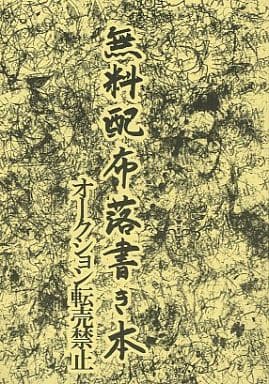 無料配布落書き本
オークション転売禁止